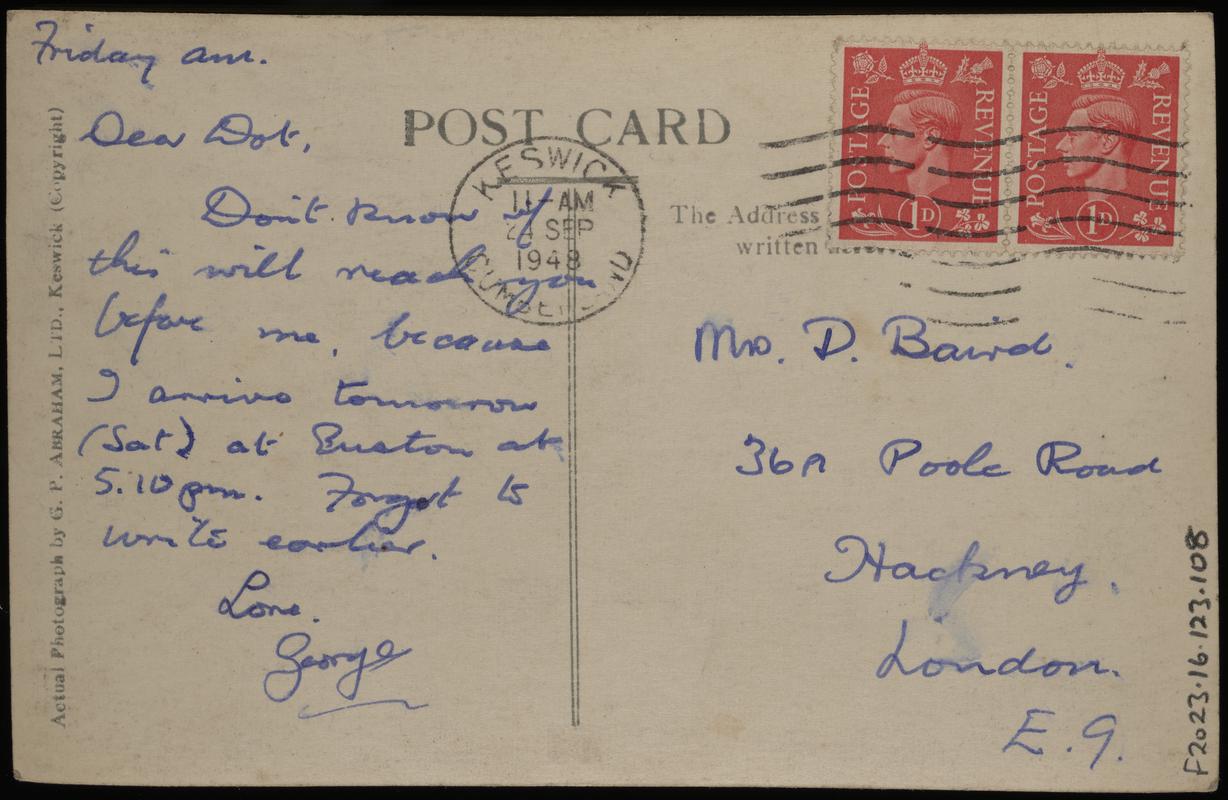 Friday am.
Dear Dot,
Don't know if
this will reach you
before me, because
I arrive tomorrow
(Sat) at Euston at
5.10 pm. Forgot to
write earlier.
Love.
George
Actual Photograph by G. P. ABRAHAM, LTD., Keswick (Copyright)
POST CARD
KESWICK
11-AM
SEP
1948
CUMBERLAND
The Address
written
POSTAGE REVENUE
1D
POSTAGE REVENUE
1D
Mrs. D. Baird.
36A Poole Road
Hackney.
London.
E.9.
F2023.16.123.108